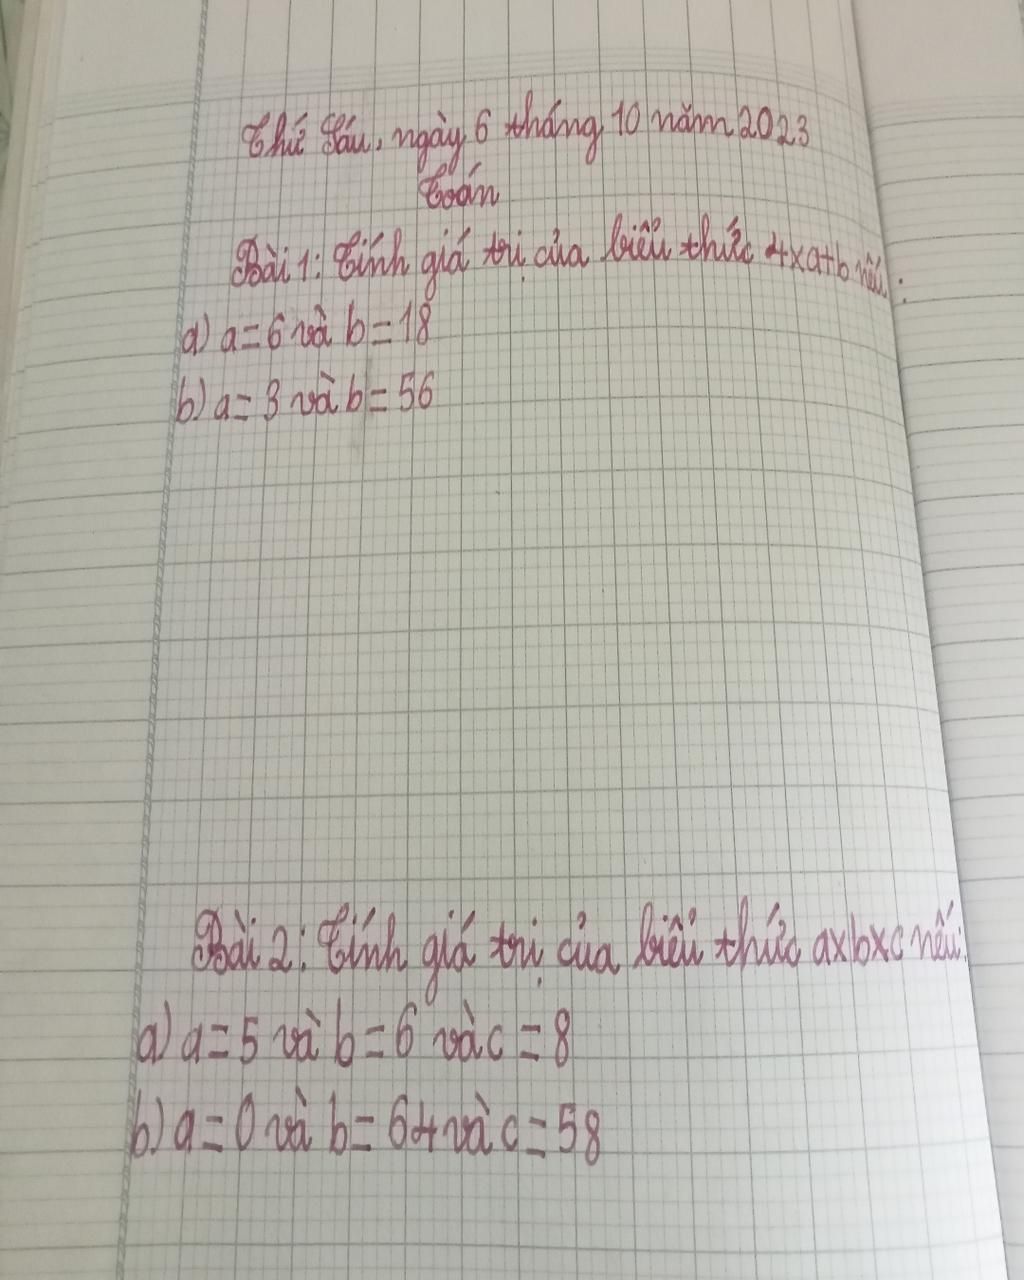 Thứ Sáu, ngày 6 tháng 10 năm 2023
Toán
Bài 1: Tính giá trị của biểu thức 4xa+b nếu:
a) a=6 và b=18
b) a=3 và b=56
Bài 2: Tính giá trị của biểu thức axbxc nếu:
a) a=5 và b=6 và c=8
b) a=0 và b=64 và c=58